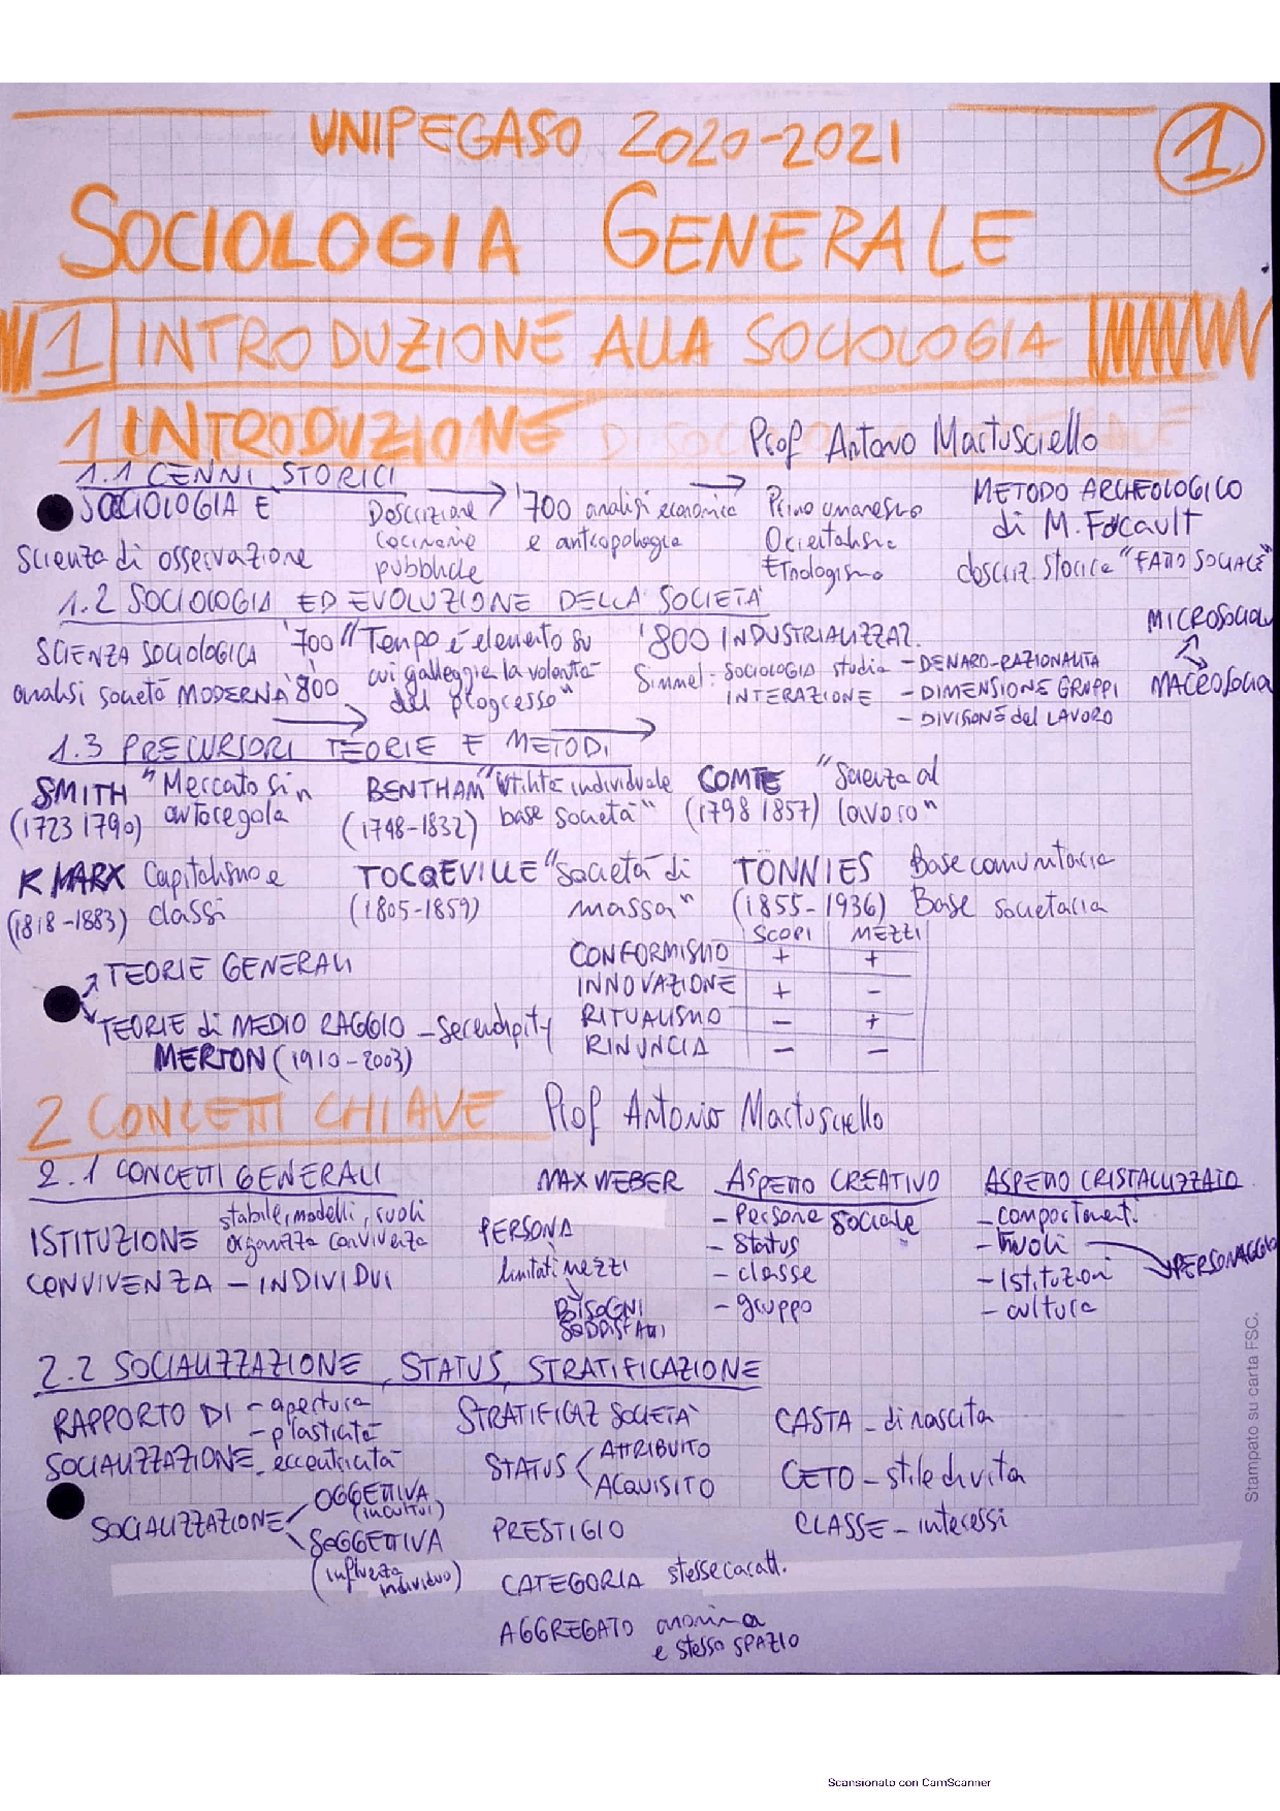 UNIPEGASO 2020-2021
1
SOCIOLOGIA GENERALE
1 INTRODUZIONE ALLA SOCIOLOGIA
1 INTRODUZIONE
Prof Antonio Martusciello
1.1 CENNI STORICI
SOCIOLOGIA È
scienza di osservazione
Descrizione
cerimonie
pubbliche
'700 analisi economica
e antropologia
Primo umanesimo
Orientalismo
Etnologismo
METODO ARCHEOLOGICO
di M. Focault
descriz. storica "FATTO SOCIALE"
1.2 SOCIOLOGIA ED EVOLUZIONE DELLA SOCIETÀ
SCIENZA SOCIOLOGICA
analisi società MODERNA
'700
'800
"Tempo è elemento su
cui galleggia la volontà
del progresso"
'800 INDUSTRIALIZZAZ.
Simmel: SOCIOLOGIA studia
INTERAZIONE
- DENARO-RAZIONALITÀ
- DIMENSIONE GRUPPI
- DIVISIONE del LAVORO
MICROSOCIOL
MACROSOCIOL
1.3 PRECURSORI TEORIE E METODI
SMITH "Mercato si
(1723 1790) autoregola
BENTHAM "utilità individuale
(1748-1832) base società"
COMTE "Scienza al
(1798 1857) lavoro"
K MARX Capitalismo e
(1818-1883) classi
TOCQEVILLE "Società di
(1805-1859) massa"
TÖNNIES Base comunitaria
(1855-1936) Base societaria
TEORIE GENERALI
TEORIE di MEDIO RAGGIO - Serendipity
MERTON (1910-2003)
SCOPI MEZZI
CONFORMISMO + +
INNOVAZIONE + -
RITUALISMO - +
RINUNCIA - -
2 CONCETTI CHIAVE
Prof Antonio Martusciello
2.1 CONCETTI GENERALI
ISTITUZIONE stabile, modelli, ruoli
organizza convivenza
CONVIVENZA - INDIVIDUI
MAX WEBER
PERSONA
limitati mezzi
BISOGNI
SODDISFATTI
ASPETTO CREATIVO
- Persone sociale
- Status
- classe
- gruppo
ASPETTO CRISTALLIZZATO
- comportamenti
- Ruoli
PERSONAGGIO
- Istituzioni
- cultura
2.2 SOCIALIZZAZIONE, STATUS, STRATIFICAZIONE
RAPPORTO DI - apertura
- plasticità
SOCIALIZZAZIONE - eccentricità
SOCIALIZZAZIONE
OGGETTIVA
SOGGETTIVA
(influenza
individuo)
STRATIFICAZ SOCIETÀ
STATUS
ATTRIBUITO
ACQUISITO
PRESTIGIO
CATEGORIA stesse caratt.
AGGREGATO anonima
e stesso SPAZIO
CASTA - di nascita
CETO - stile di vita
CLASSE - interessi
Stampato su carta FSC.
Scansionato con CamScanner